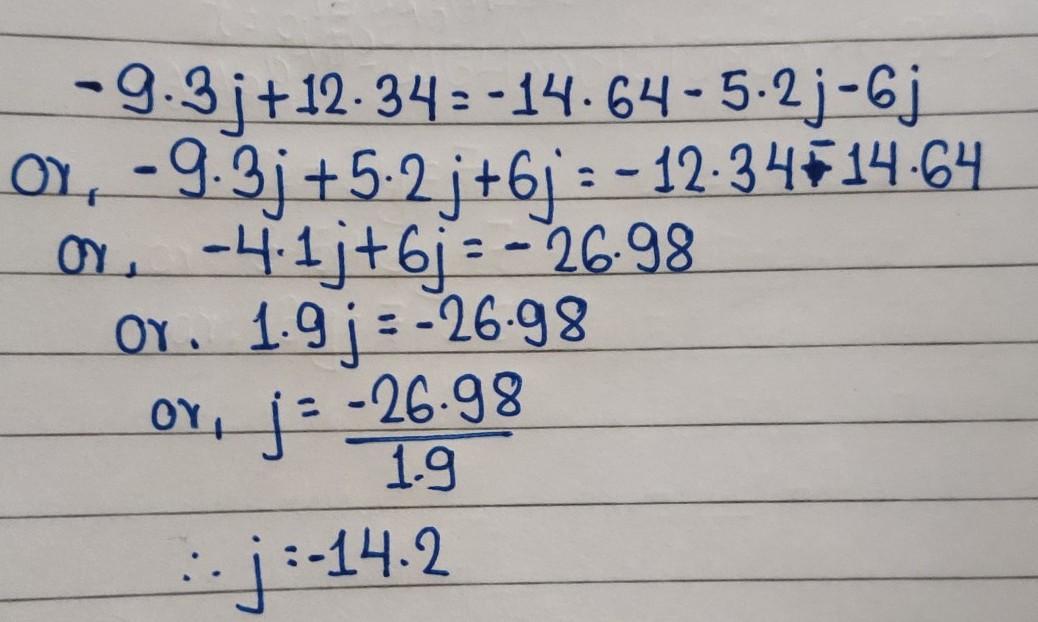 -9.3j+12.34=-14.64-5.2j-6j
or, -9.3j+5.2j+6j=-12.34-14.64
or, -4.1j+6j=-26.98
or. 1.9j=-26.98
or, j= -26.98
1.9
∴ j=-14.2